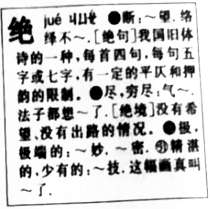 绝 jué ㄐㄩㄝˊ ●断：～望. 络
绎不～.[绝句]我国旧体
诗的一种，每首四句，每句五
字或七字，有一定的平仄和押
韵的限制. ●尽，穷尽：气～.
法子都想～了.[绝境]没有希
望、没有出路的情况. ●极，
极端的：～妙. ～密. ㊕精湛
的，少有的：～技. 这幅画真叫
～了.